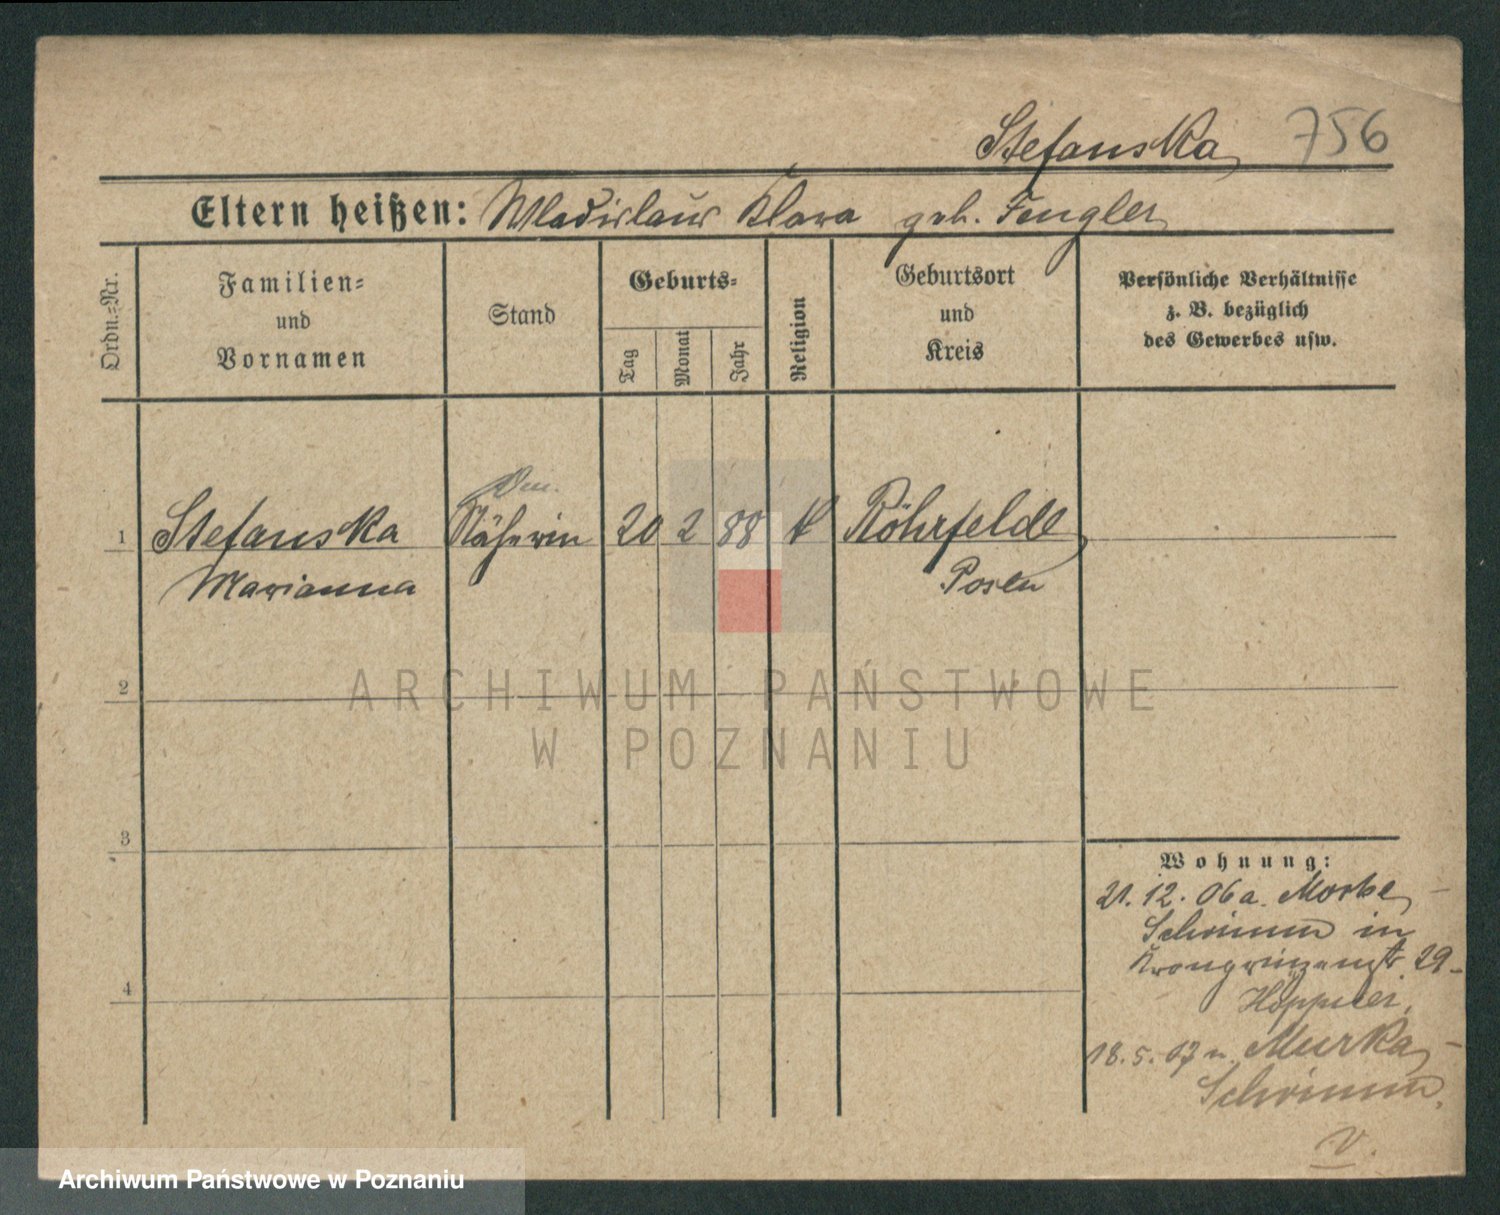 Stefanska 756
Eltern heißen: Wladislaus Klara geb. Fengler
Ordn.=Nr.
Familien=
und
Vornamen
Stand
Geburts=
Tag
Monat
Jahr
Religion
Geburtsort
und
Kreis
Persönliche Verhältnisse
z. B. bezüglich
des Gewerbes usw.
1 Stefanska Näherin 20 2 88 k Röhrfelde
Marianna Posen
2
3
4
Wohnung:
21. 12. 06 a.
Schrimm in
Kronprinzenstr. 29
18. 5. 07 n. Murka
Schrimm.
v.
ARCHIWUM PAŃSTWOWE
W POZNANIU
Archiwum Państwowe w Poznaniu